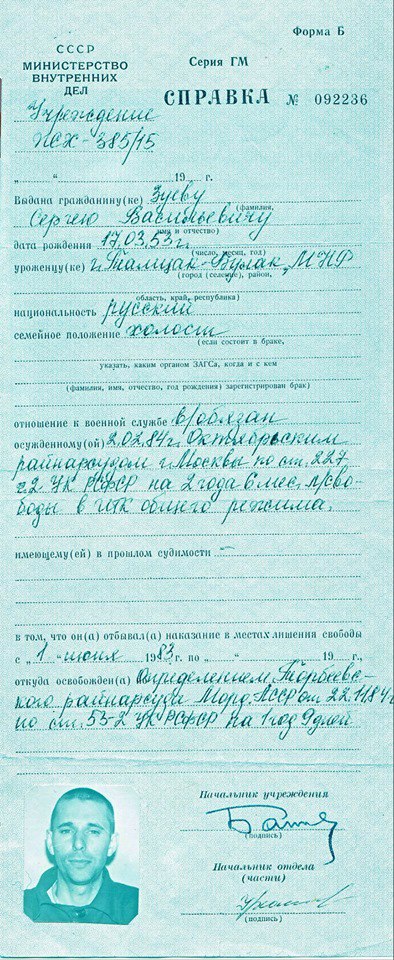 Форма Б
СССР
МИНИСТЕРСТВО
ВНУТРЕННИХ
ДЕЛ
Серия ГМ
СПРАВКА № 092236
Учреждение
ЖХ-385/15
„ “ 19 г.
Выдана гражданину(ке) Зуеву
(фамилия,
Сергею Васильевичу
имя и отчество)
дата рождения 17.03.53г.
(число, месяц, год)
уроженцу(ке) г. Талицак-Булак, МНР
(город (селение), район,
область, край, республика)
национальность русский
семейное положение холост
(если состоит в браке,
указать, каким органом ЗАГСа, когда и с кем
(фамилия, имя, отчество, год рождения) зарегистрирован брак)
отношение к военной службе в/обязан
осужденному(ой) 2.02.84г. Октябрьским
райнарсудом г. Москвы по ст. 227
ч.2 УК РСФСР на 2 года 6 мес. л/сво-
боды в ИТК общего режима.
имеющему(ей) в прошлом судимости –
в том, что он(а) отбывал(а) наказание в местах лишения свободы
с „1“ июня 1983 г. по „ “ 19 г.
откуда освобожден(а) Определением Торбеевс-
кого райнарсуда Морд. АССР от 22.11.84г
по ст. 53-2 УК РСФСР на 1 год 9 дней
Начальник учреждения
(подпись)
Начальник отдела
(части)
(подпись)